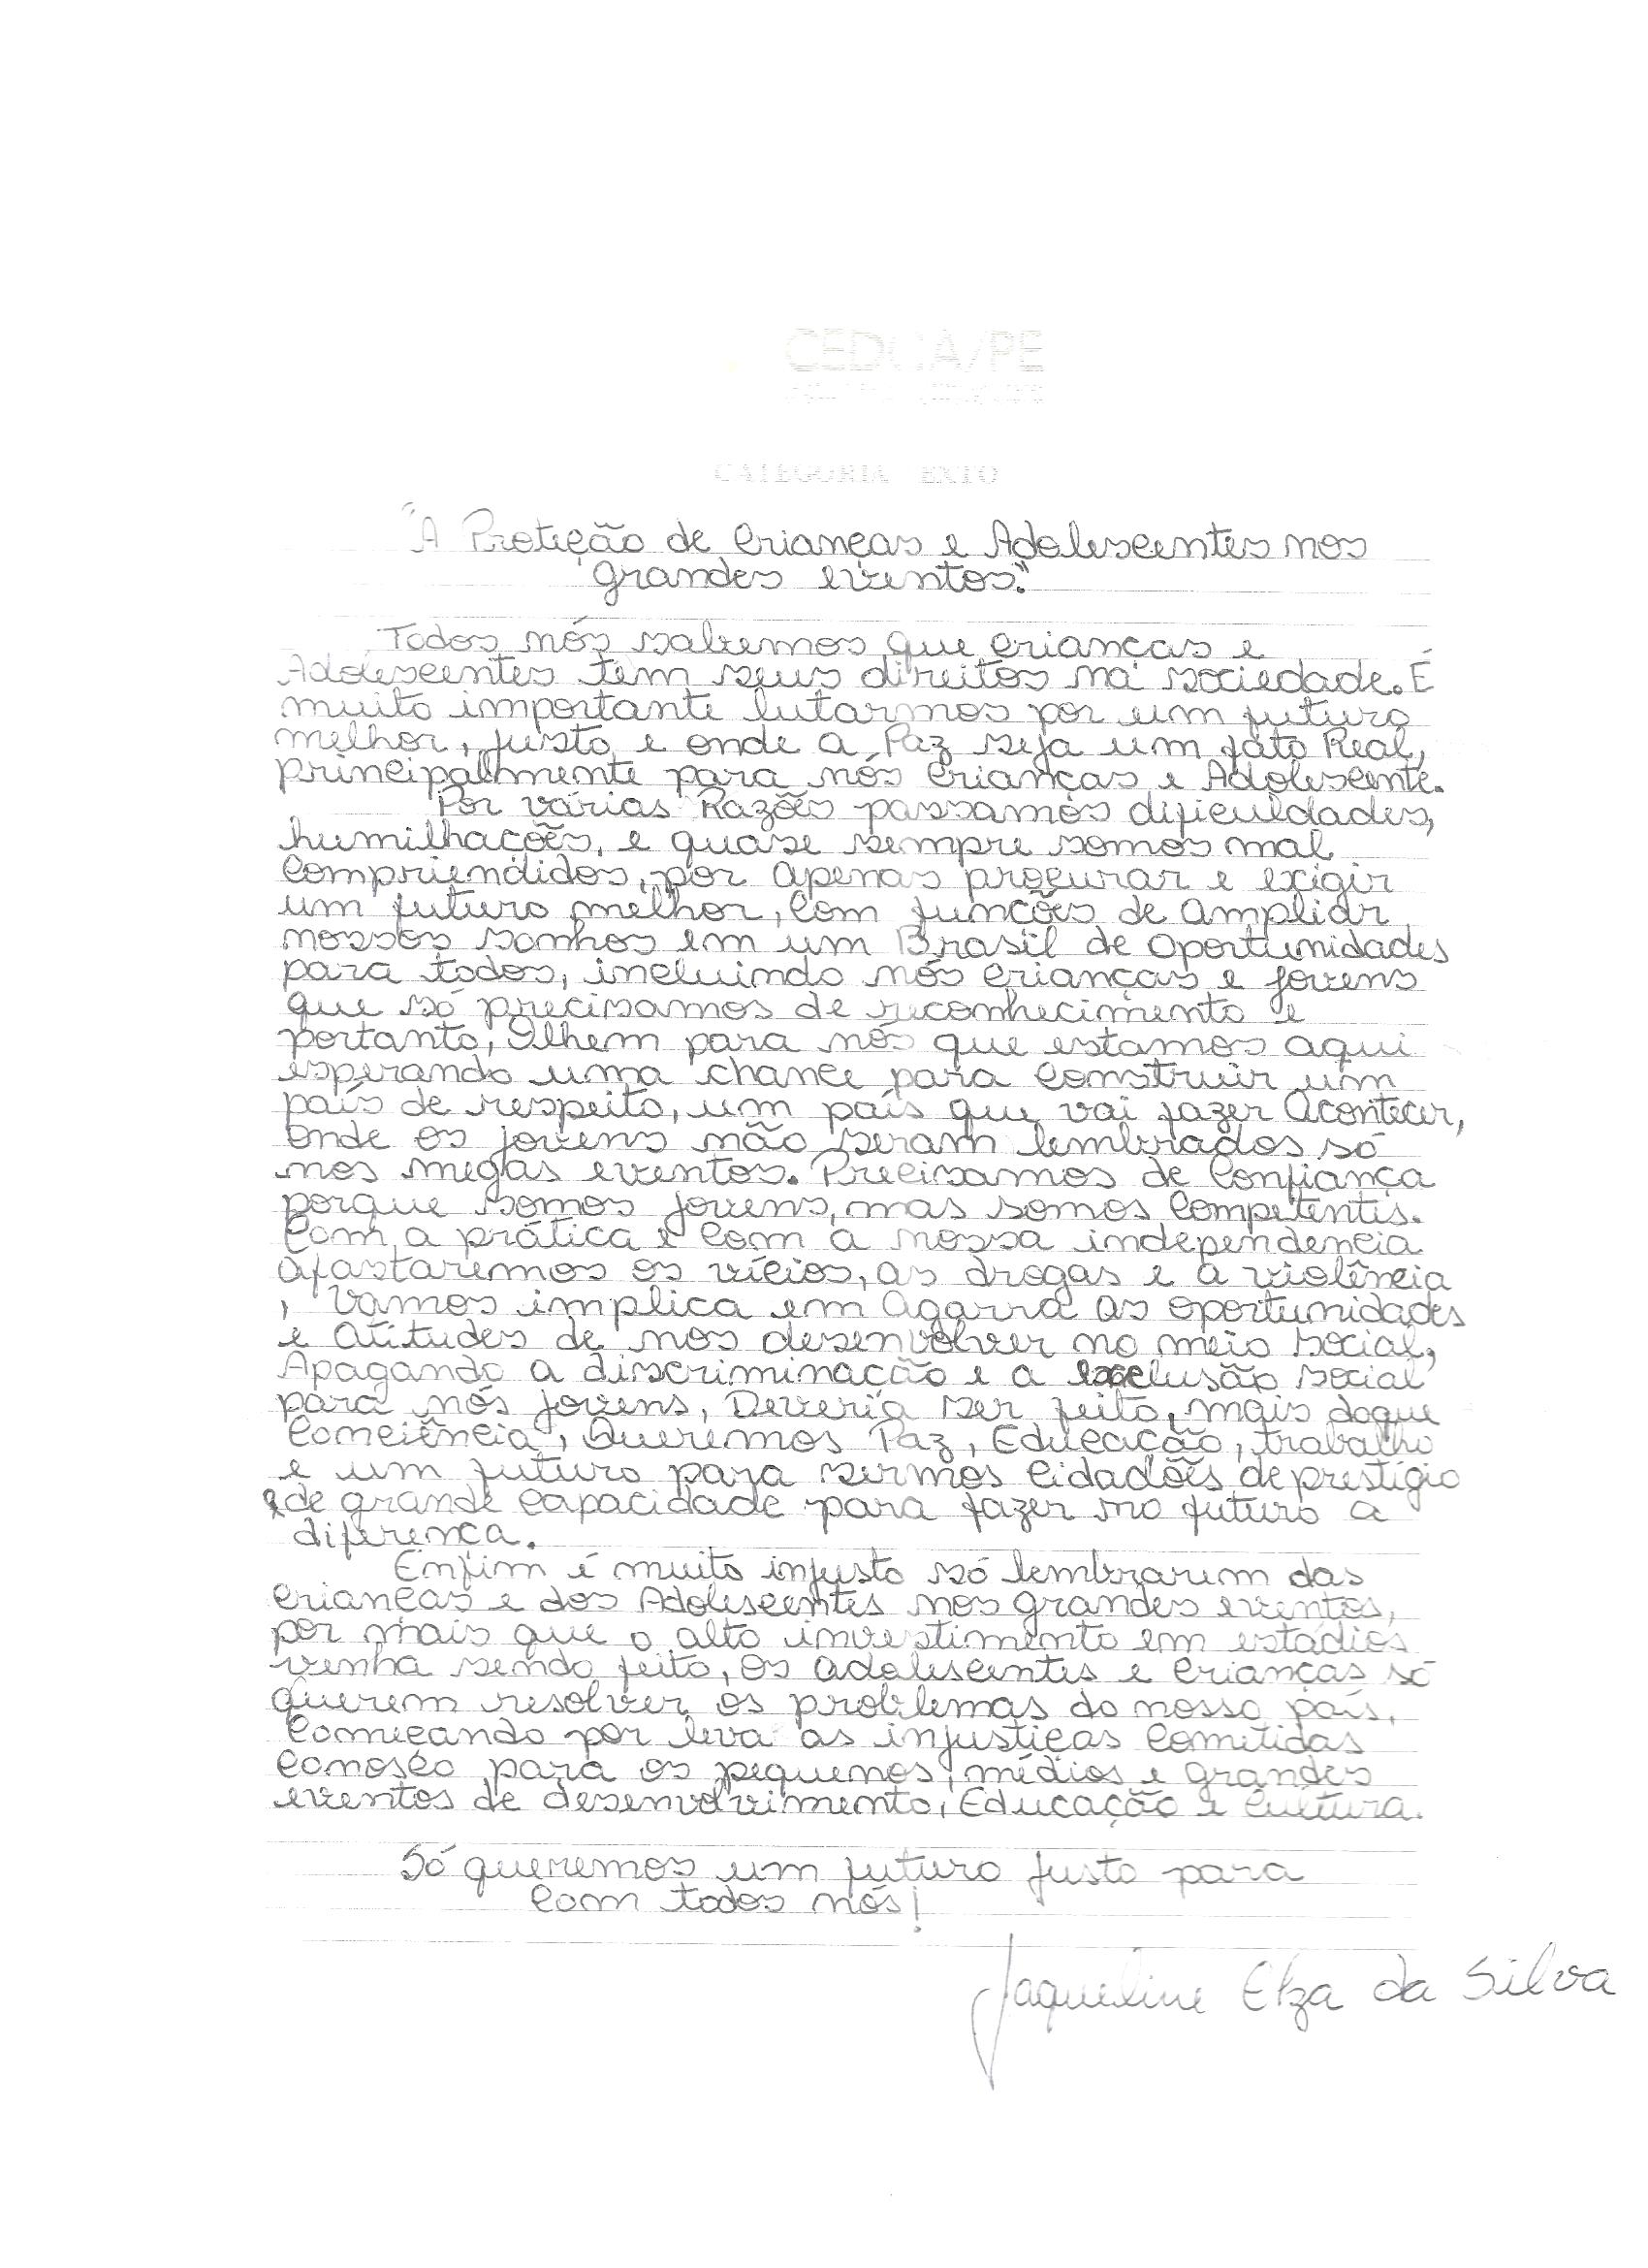 CEDCA/PE
CATEGORIA TEXTO
"A Proteção de Crianças e Adolescentes nos
grandes eventos."
Todos nós sabemos que crianças e
Adolescentes têm seus direitos na sociedade. É
muito importante lutarmos por um futuro
melhor, justo e onde a Paz seja um fato Real,
principalmente para nós crianças e Adolescente.
Por várias Razões passamos dificuldades,
humilhações, e quase sempre somos mal
compriendidos, por apenas procurar e exigir
um futuro melhor, com funções de ampliar
nossos sonhos em um Brasil de oportunidades
para todos, incluindo nós crianças e jovens
que só precisamos de reconhecimento e
portanto, Olhem para nós que estamos aqui
esperando uma chance para construir um
país de respeito, um país que vai fazer Acontecer,
onde os jovens não seram lembrados só
nos megas eventos. Precisamos de Confiança
porque somos jovens, mas somos Competentes.
Com a prática e com a nossa independencia
afastaremos os vícios, as drogas e a violência
, vamos implica em agarra as oportunidades
e atitudes de nos desenvolver no meio social,
Apagando a discriminação e a exclusão social
para nós jovens, Deveria ser feito, mais doque
Conciência, Queremos Paz, Educação, trabalho
e um futuro para sermos cidadões de prestígio
e de grande capacidade para fazer no futuro a
diferença.
Enfim é muito injusto só lembrarem das
crianças e dos Adolescentes nos grandes eventos,
por mais que o alto investimento em estádios
venha sendo feito, os adolescentes e crianças só
querem resolver os problemas do nosso país,
Começando por leva as injustiças cometidas
conosco para os pequenos, médios e grandes
eventos de desenvolvimento, Educação e Cultura.
Só queremos um futuro justo para
com todos nós!
Jaqueline Elza da Silva